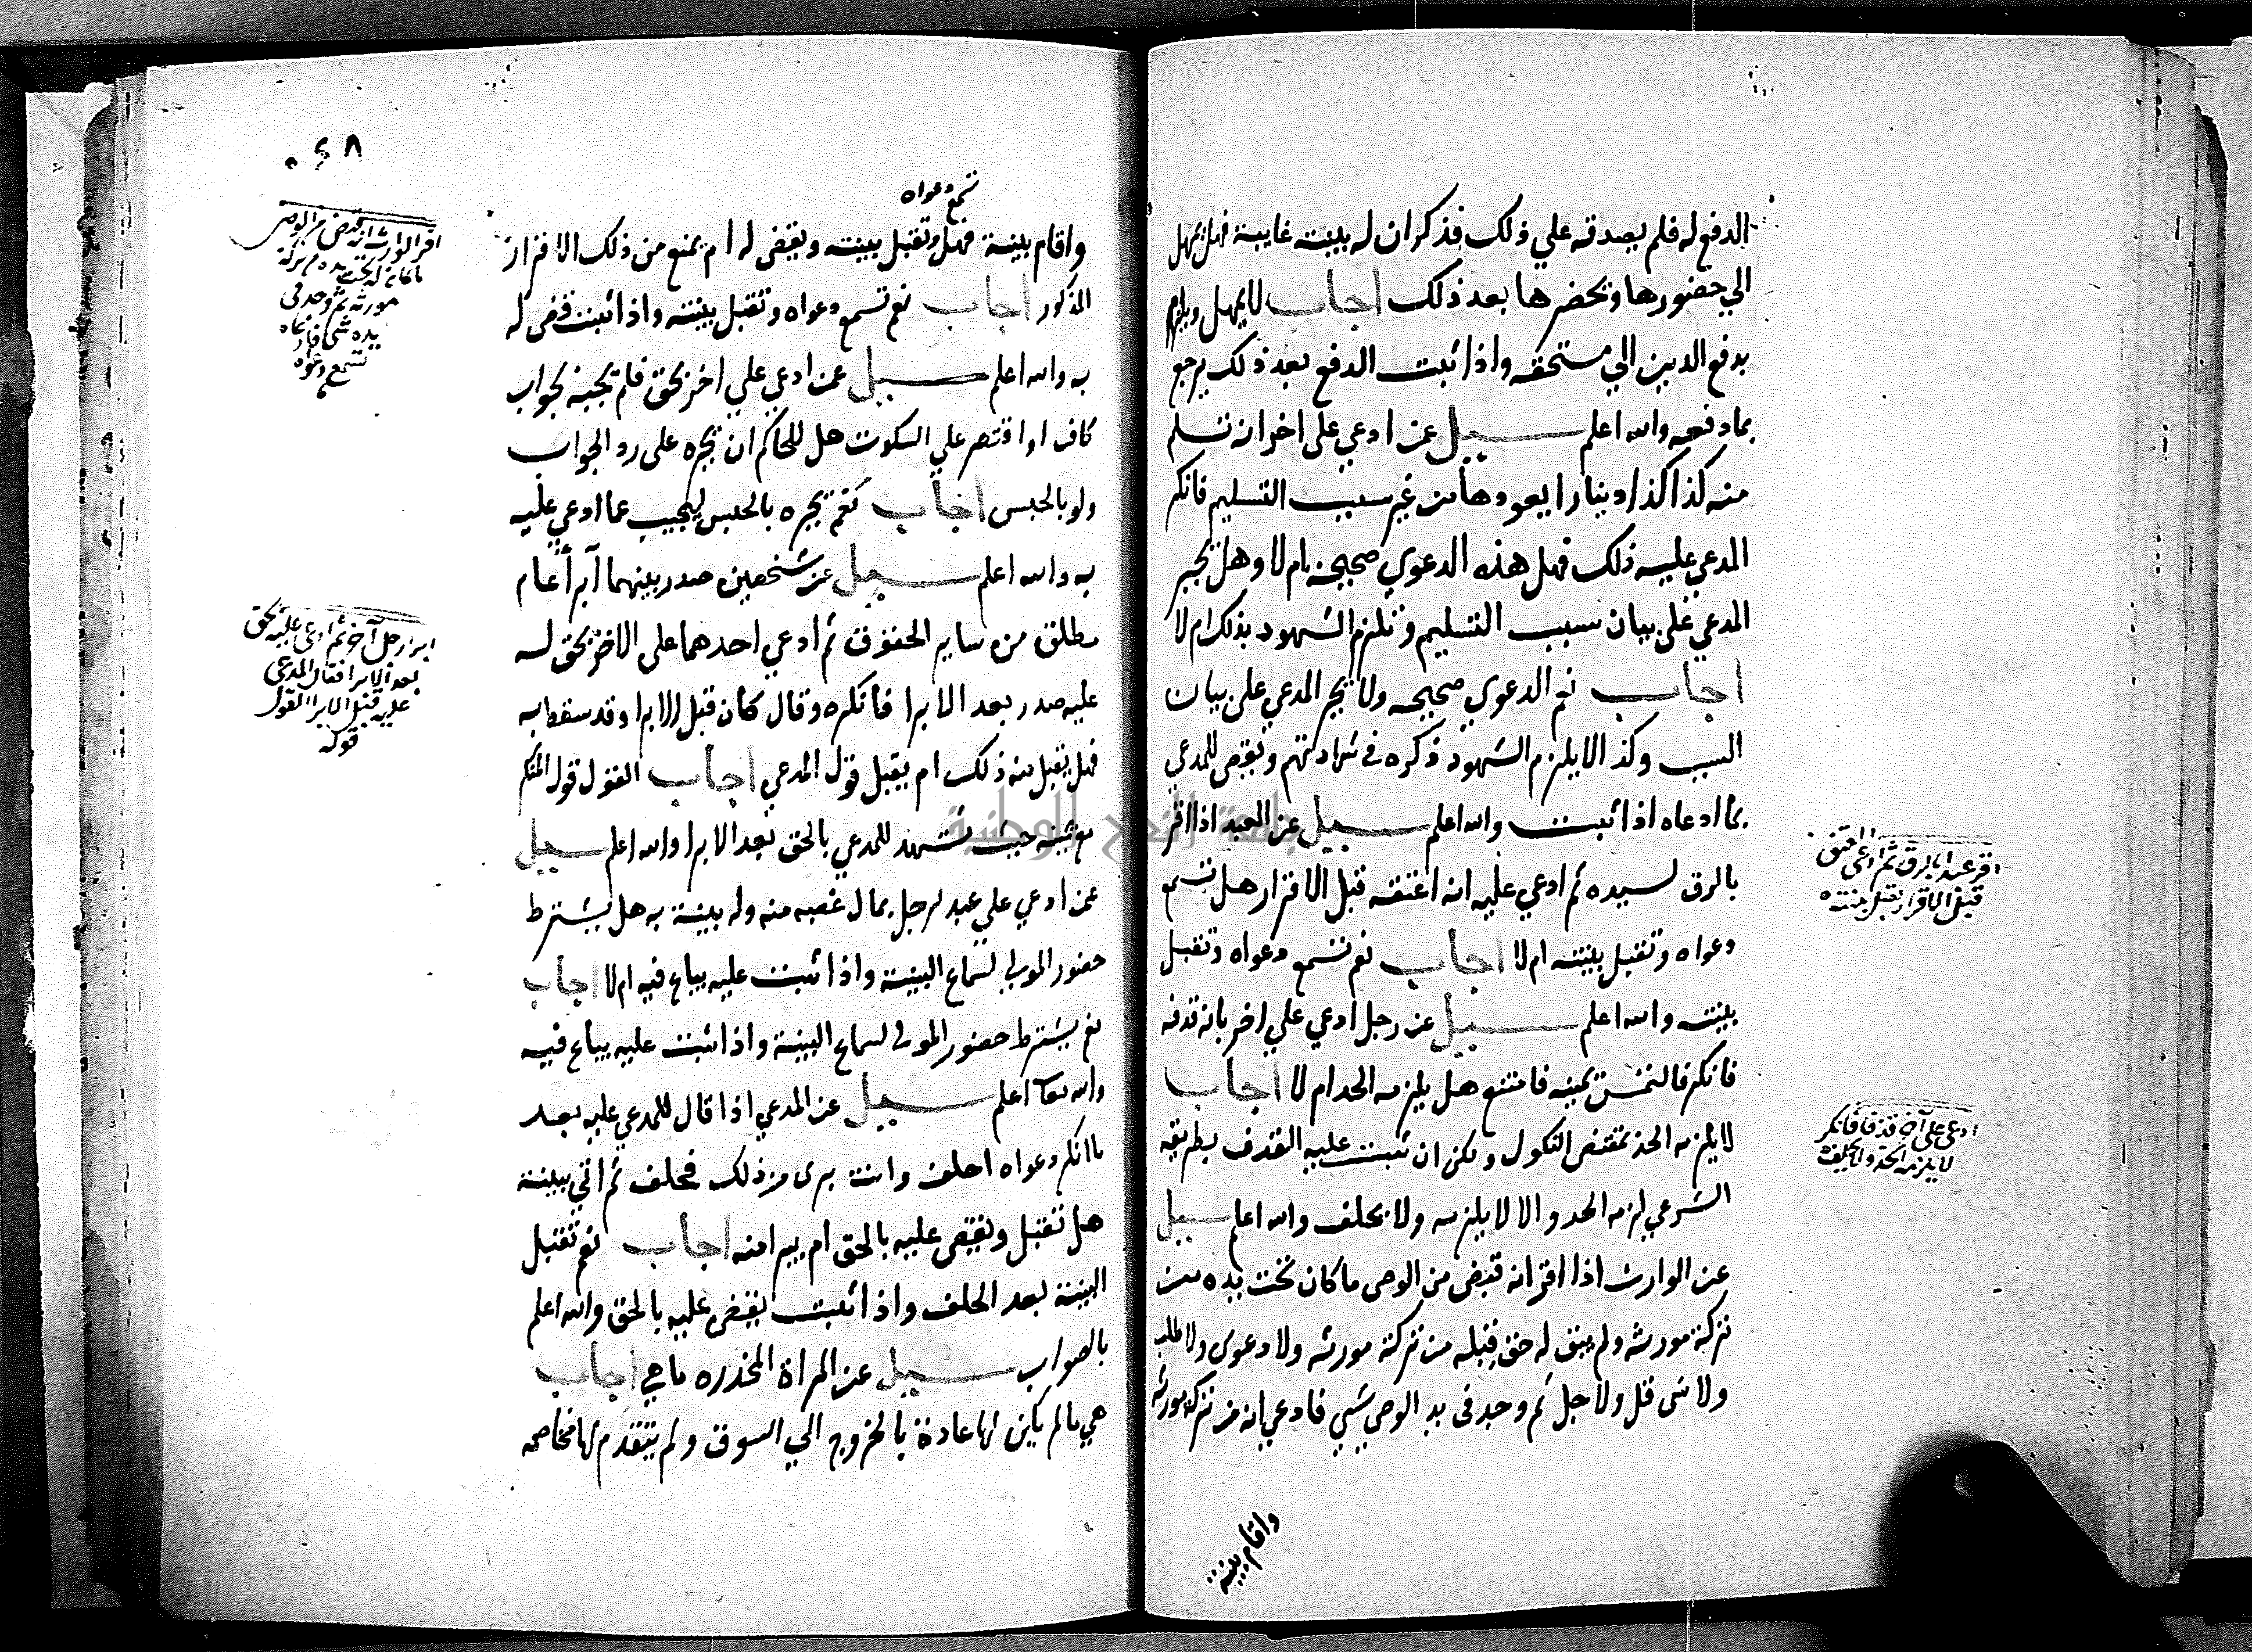 الدفع له فلم يصدقه علي ذلك فذكر ان له بينة غايبة فهل يمهل
الي حضورها ويحضرها بعد ذلك اجاب لا يمهل ويلزم
بدفع الدين الي مستحقه واذا ثبت الدفع بعد ذلك يرجع
بما دفعه والله اعلم سيل عن ادعي علي اخر انه تسلم
منه كذا كذا دينارا يعودها من غير سبب التسليم فانكر
المدعي عليه ذلك فهل هذه الدعوي صحيحة ام لا وهل يجبر
المدعي علي بيان سبب التسليم وتلزم الشهود بذلك ام لا
اجاب نعم الدعوي صحيحه ولا يجبر المدعي علي بيان
السبب وكذا لا يلزم الشهود ذكره في شهادتهم ويقضي للمدعي
بما ادعاه اذا ثبت والله اعلم سيل عن العبد اذا اقر
بالرق لسيده ثم ادعي عليه انه اعتقه قبل الاقرار هل تسمع
دعواه وتقبل بينته ام لا اجاب نعم تسمع دعواه وتقبل
بينته والله اعلم سيل عن رجل ادعي علي اخر بانه قذفه
فانكر فالتمس يمينه فامتنع هل يلزمه الحد ام لا اجاب
لا يلزمه الحد بمقتضي النكول ولكن ان ثبت عليه القذف بطريقه
الشرعي لزمه الحد والا لا يلزمه ولا يحلف والله اعلم سيل
عن الوارث اذا اقر انه قبض من الوصي ما كان تحت يده من
تركة مورثه ولم يبق له حق قبله من تركة مورثه ولا دعوي ولا طلب
ولا شي قل ولا جل ثم وجد في يد الوصي شي فادعي انه من تركة مورثه
واقام بينة
اقر عبد بالرق ثم ادعي العتق
قبل الاقرار تقبل بينته
ادعي علي آخر قذفا فانكر
لا يلزمه الحد ولا يحلف
٠٤٨
تسمع دعواه
واقام بينة فهل وتقبل بينته ويقضي له ام يمنع من ذلك الاقرار
المذكور اجاب نعم تسمع دعواه وتقبل بينته واذا ثبت قضي له
به والله اعلم سيل عن ادعي علي اخر بحق فلم يجبه بجواب
كاف او اقتصر علي السكوت هل للحاكم ان يجبره علي رد الجواب
ولو بالحبس اجاب نعم يجبره بالحبس ليجيب عما ادعي عليه
به والله اعلم سيل عن شخصين صدر بينهما آبرأ عام
مطلق من ساير الحقوق ثم ادعي احدهما علي الاخر بحق له
عليه صدر بعد الابرا فانكره وقال كان قبل الابرا وقد سقط به
فهل يقبل منه ذلك ام يقبل قول المدعي اجاب القول قول المنكر
حيث تشهد للمدعي بالحق بعد الابرا والله اعلم سيل
عن ادعي علي عبد لرجل بمال غصبه منه وله بينة به هل يشترط
حضور المولي لسماع البينة واذا ثبت عليه يباع فيه ام لا اجاب
نعم يشترط حضور المولي لسماع البينة واذا ثبت عليه يباع فيه
والله تعالي اعلم سيل عن المدعي اذا قال للمدعي عليه بعد
ما انكر دعواه احلف وانت بري من ذلك فحلف ثم اتي ببينة
هل تقبل ويقضي عليه بالحق ام يبرا منه اجاب نعم تقبل
البينة بعد الحلف واذا ثبت يقضي عليه بالحق والله اعلم
بالصواب سيل عن المراة المخدره ما هي اجاب
هي ما لم يكن لها عادة بالخروج الي السوق ولم يتقدم لها مخاصمه
اقر الوارث انه قبض من الوصي
ما كان تحت يده من تركة
مورثه ثم وجد في
يده شي فادعاه
تسمع دعواه
ابرا رجل آخر ثم ادعي عليه بحق
بعد الابرا فقال المدعي
عليه قبل الابرا القول
قوله